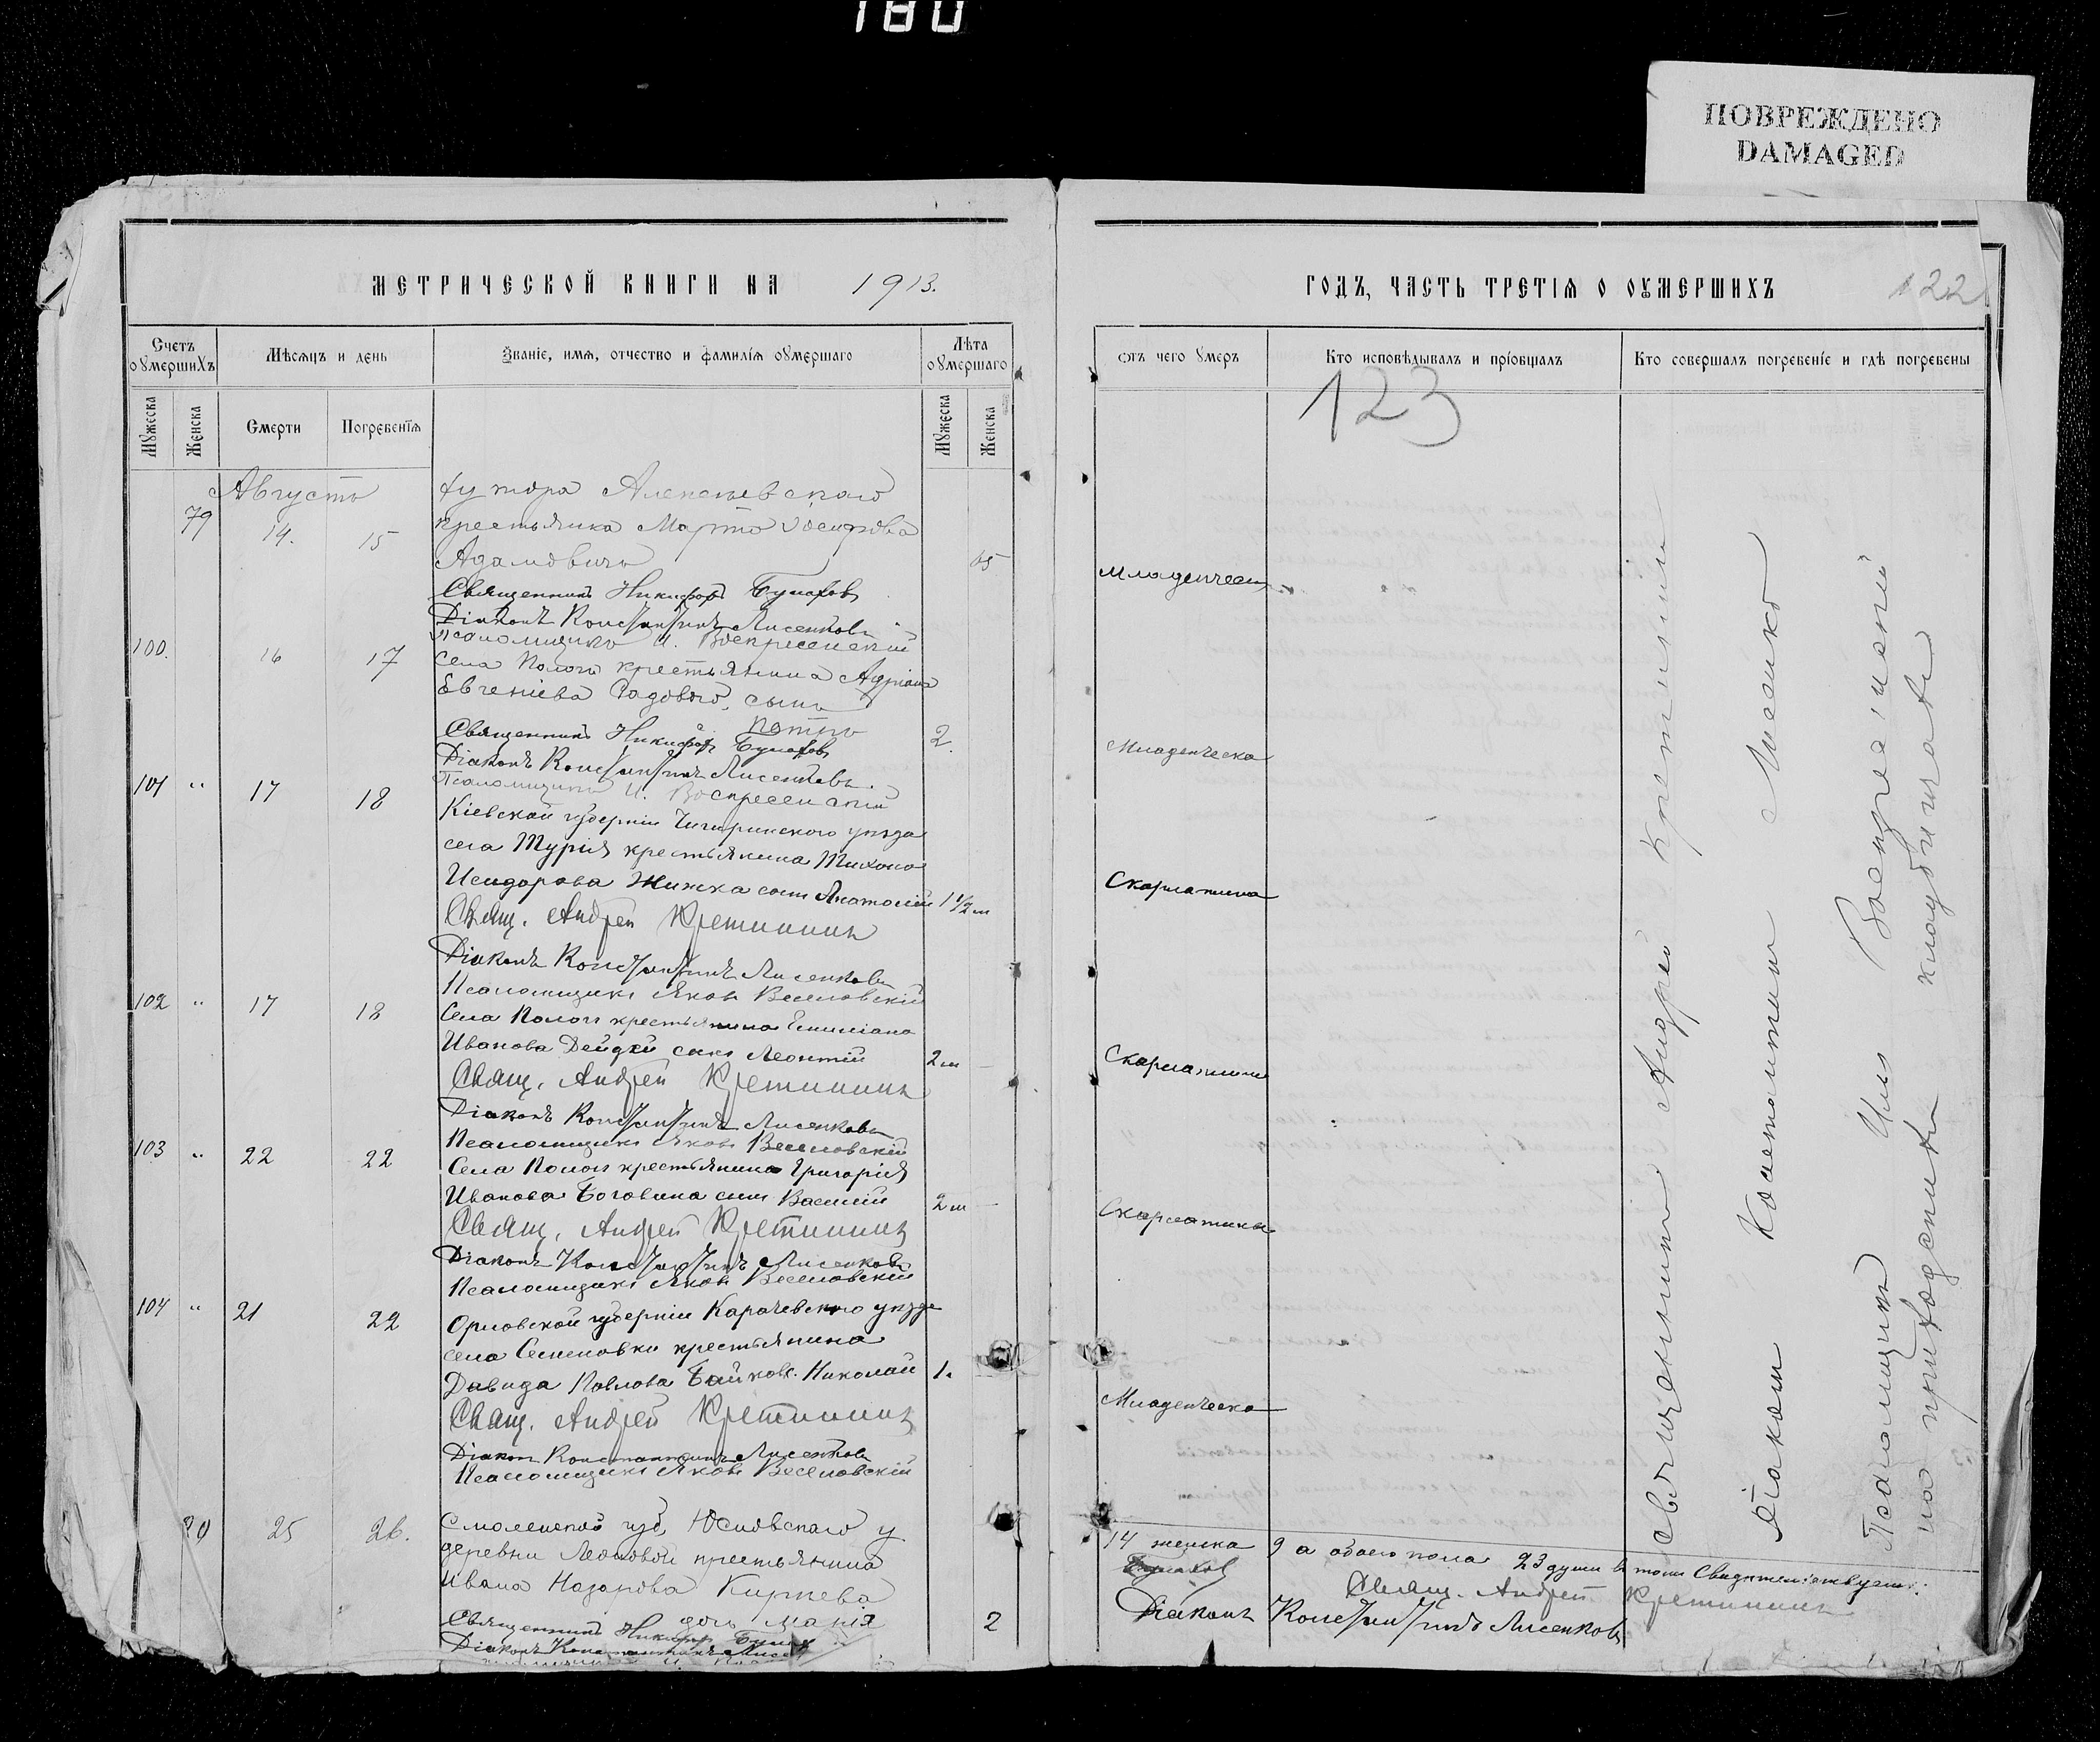 180
ПОВРЕЖДЕНО
DAMAGED
МЕТРИЧЕСКОЙ КНИГИ НА 1913.
Счетъ оумершихъ
Мѣсяцъ и день
Званіе, имя, отчество и фамилія оумершаго
Лѣта оумершаго
Мужеска
Женска
Смерти
Погребенія
Мужеска
Женска
Августъ
хутора Алексѣевскаго
79 14. 15 крестьянка Марта Іосифова
Адамовичъ 65
Священникъ Никифоръ
Діаконъ Константинъ Лисенковъ
Псаломщикъ И. Воскресенскій
100. 16 17 Села Пологъ крестьянина Адріана
Евгеніева Садоваго, сынъ
Петръ 2.
Священникъ Никифоръ
Діаконъ Константинъ Лисенковъ
Псаломщикъ И. Воскресенскій
101 " 17 18
Кіевской губерніи Чигиринского уѣзда
села Турія крестьянина Тихона
Исидорова Жижка сынъ Анатолій 1 1/2 м
Свящ. Андрей Кретининъ
Діаконъ Константинъ Лисенковъ
Псаломщикъ Яковъ Веселовскій
102 " 17 18 Села Пологъ крестьянина Емиліана
Иванова Дейдей сынъ Леонтій 2 м
Свящ. Андрей Кретининъ
Діаконъ Константинъ Лисенковъ
Псаломщикъ Яковъ Веселовскій
103 " 22 22 Села Пологъ крестьянина Григорія
Иванова Боговина сынъ Василій 2 м
Свящ. Андрей Кретининъ
Діаконъ Константинъ Лисенковъ
Псаломщикъ Яковъ Веселовскій
104 " 21 22 Орловской губерніи Карачевского уѣзда
села Семеновки крестьянина
Давида Павлова Байковъ. Николай 1.
Свящ. Андрей Кретининъ
Діаконъ Константинъ Лисенковъ
Псаломщикъ Яковъ Веселовскій
80 25 26. Смоленской губ. у
деревни крестьянина
Ивана Назарова Киреева
дочь Марія 2
Священникъ Никифоръ
Діаконъ Константинъ
ГОДЪ, ЧАСТЬ ТРЕТІЯ О ОУМЕРШИХЪ
122
отъ чего умеръ
Кто исповѣдывалъ и пріобщалъ
Кто совершалъ погребеніе и гдѣ погребены
123
Младенческ
Младенческа
Скарлатина
Скарлатина
Скарлатина
Младенческа
Священникъ Андрей Кретининъ
Діаконъ Константинъ Лисенко
Псаломщикъ Илья Воскресенскій
на приходскомъ кладбищѣ
14 женска 9 а обоего пола 23 души въ томъ свидѣтельствуемъ:
Свящ. Андрей Кретининъ
Діаконъ Константинъ Лисенковъ